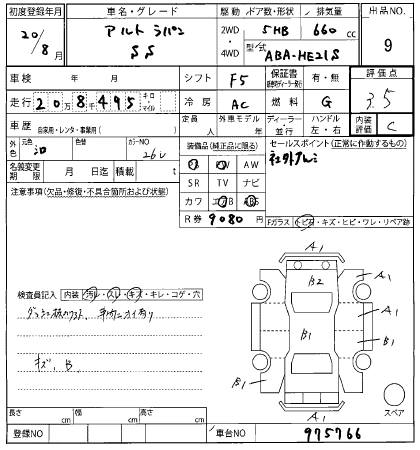 初度登録年月 車名・グレード 駆動 ドア数・形状 排気量 出品NO
20/8月 アルトラパン SS 2WD 4WD 5HB 660cc 9
型式 ABA-HE21S
車検 年 月 シフト F5 保証書 有・無 評価点 3.5
走行 20万8千495 キロ・マイル 冷房 AC 燃料 G
車歴 自家用・レンタ・事業用( ) 定員 人 外車モデル 年 ディーラー・並行 ハンドル 左・右 内装評価 C
外色 元色 色替 カラーNO 26U
装備品(純正品に限る) セールスポイント(正常に作動するもの)
PS PW AW 社外アルミ
名義変更期限 月 日迄 積載 t
SR TV ナビ
注意事項(欠品・修復・不具合箇所および状態)
カワ エアB ABS
R券 9080円
Fガラス トビ石・キズ・ヒビ・ワレ・リペア跡
A1
B2
A1
A1
B1
B1
B1
A1
スペア
検査員記入 内装 汚レ・スレ・キズ・キレ・コゲ・穴
キズ、B
長さ cm 幅 cm 高さ cm
登録NO 車台NO 975766